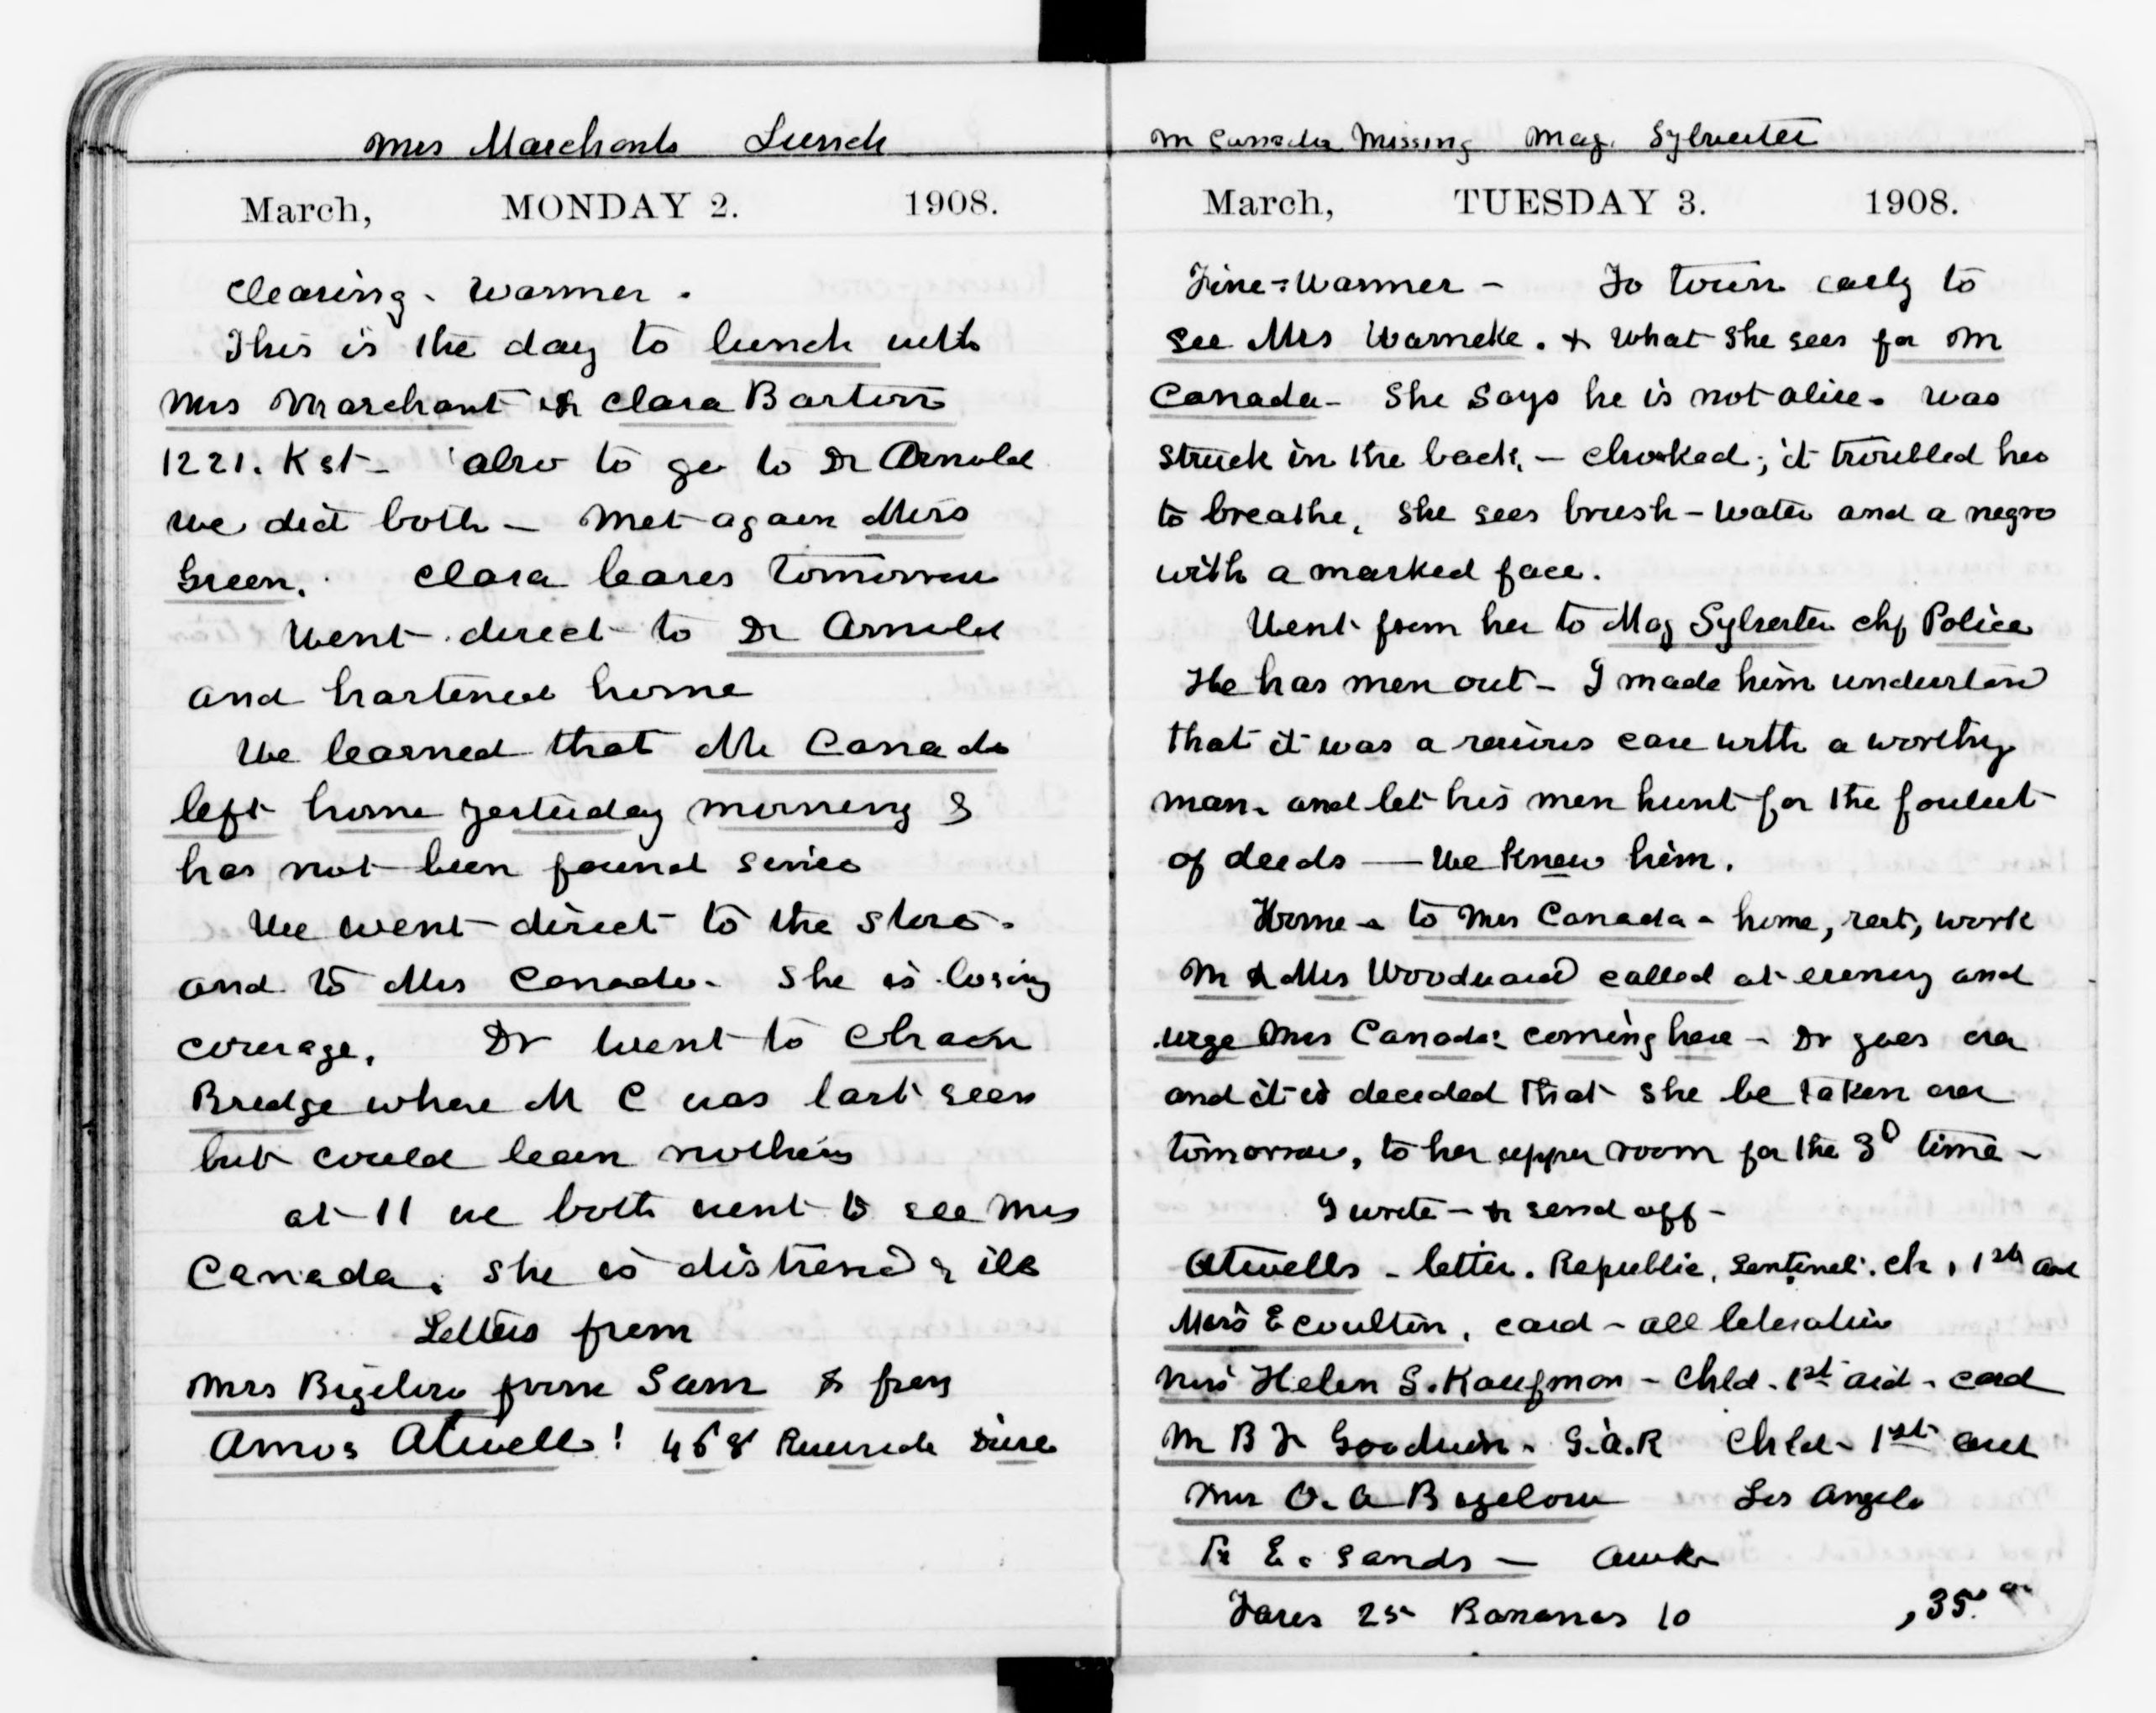 Mrs Marchants Lunch
March, MONDAY 2. 1908.
Clearing - warmer.
This is the day to lunch with
Mrs Marchant & Clara Barton
1221. K st - also to go to Dr Arnold
we did both - Met again Miss
Green. Clara leaves tomorrow
Went direct to Dr Arnold
and hastened home
We learned that Mr Canada
left home yesterday morning &
has not been found since
We went direct to the store.
and to Mrs Canada. She is losing
courage. Dr went to Chain
Bridge where M C was last seen
but could learn nothing
at 11 we both went to see Mrs
Canada. she is distressed & ill
Letters from
Mrs Bigelow from Sam & from
Amos Atwell! 468 Riverside Drive
M Canada Missing Maj. Sylvester
March, TUESDAY 3. 1908.
Fine - Warmer - To town early to
see Mrs Warneke. & what she sees for M
Canada - She says he is not alive. was
struck in the back, - choked; it troubled her
to breathe, she sees brush - water and a negro
with a marked face.
Went from her to Maj Sylvester chf Police
He has men out - I made him understand
that it was a serious case with a worthy
man. and let his men hunt for the foulest
of deeds — We knew him.
Home - to Mrs Canada - home, rest, work
M & Mrs Woodward called at evening and
urge Mrs Canada's coming here - Dr goes over
and it is decided that she be taken over
tomorrow, to her upper room for the 3d time -
I write - & send off -
Atwells - letter. Republic, Sentinel. ch, 1st
Miss E Coulton, card - all
Miss Helen S. Kaufman - Chld - 1st aid - card
M B F Goodwin - G.A.R Chld - 1st card
Mrs O. A Bigelow Los Angels
E. Sands -
Fares 25 Bananas 10 ,35.